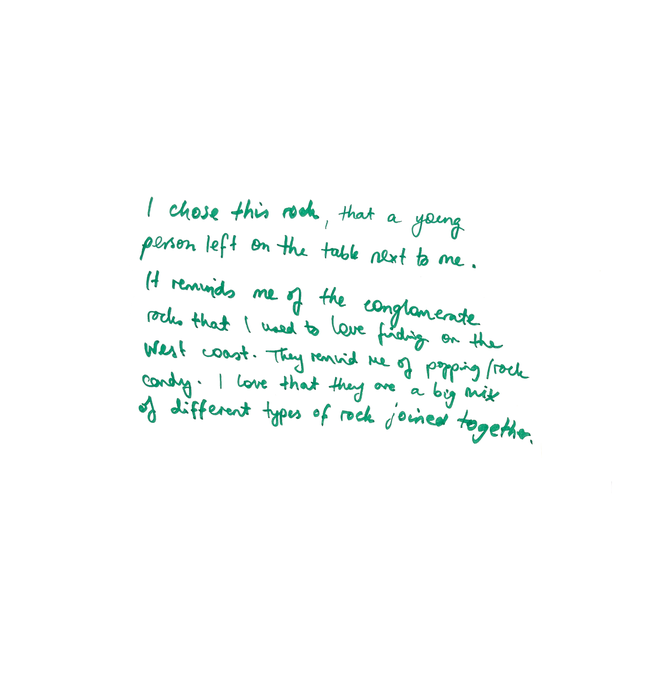 I chose this rock, that a young
person left on the table next to me.
It reminds me of the conglomerate
rocks that I used to love finding on the
West coast. They remind me of popping/rock
candy. I love that they are a big mix
of different types of rock joined together.